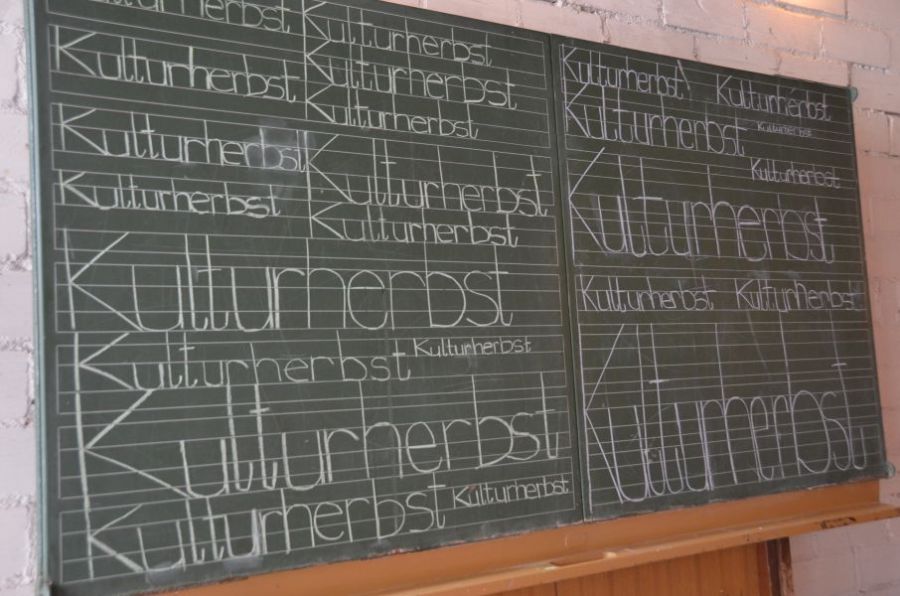 Kulturherbst Kulturherbst
Kulturherbst Kulturherbst
Kulturherbst
Kulturherbst Kulturherbst
Kulturherbst Kulturherbst
Kulturherbst
Kulturherbst Kulturherbst
Kulturherbst
Kulturherbst Kulturherbst
Kulturherbst Kulturherbst
Kulturherbst Kulturherbst
Kulturherbst
Kulturherbst
Kulturherbst Kulturherbst
Kulturherbst